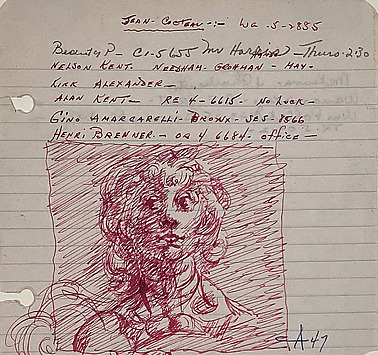 JEAN-COCTEAU-:- WA-5-2835
Beauty P- CI-5655 Mr Harford - Thurs-2:30
NELSON KENT. NEEDHAM-GROHMAN - MAY-
KIRK ALEXANDER
ALAN KENT- RE 4-6615. NO LUCK-
GINO AMARCARELLI-BRONX-SE5-8566
HENRI BRENNER- OR 4 6684- OFFICE-
A47